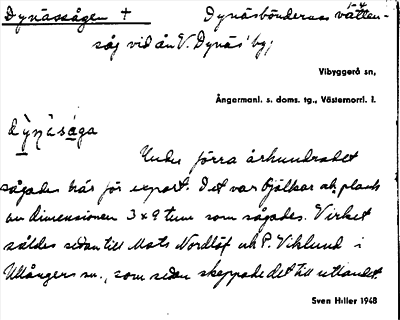 Dynässågen + Dynäsböndernas 1-4 vatten-
såg vid ån V. Dynäs' by;
Vibyggerå sn,
Ångermanl. s. doms. tg., Västernorrl. l.
dy̱ńäsa̱ga
Under förra århundradet
sågades här för export. Det var bjälkar ah plank
av dimensionen 3x9 tum som sågades. Virket
såldes sedan till Mats Nordlöf ah P. Viklund i
Ullångers sn., som sedan skeppade det till utlandet.
Sven Hiller 1948